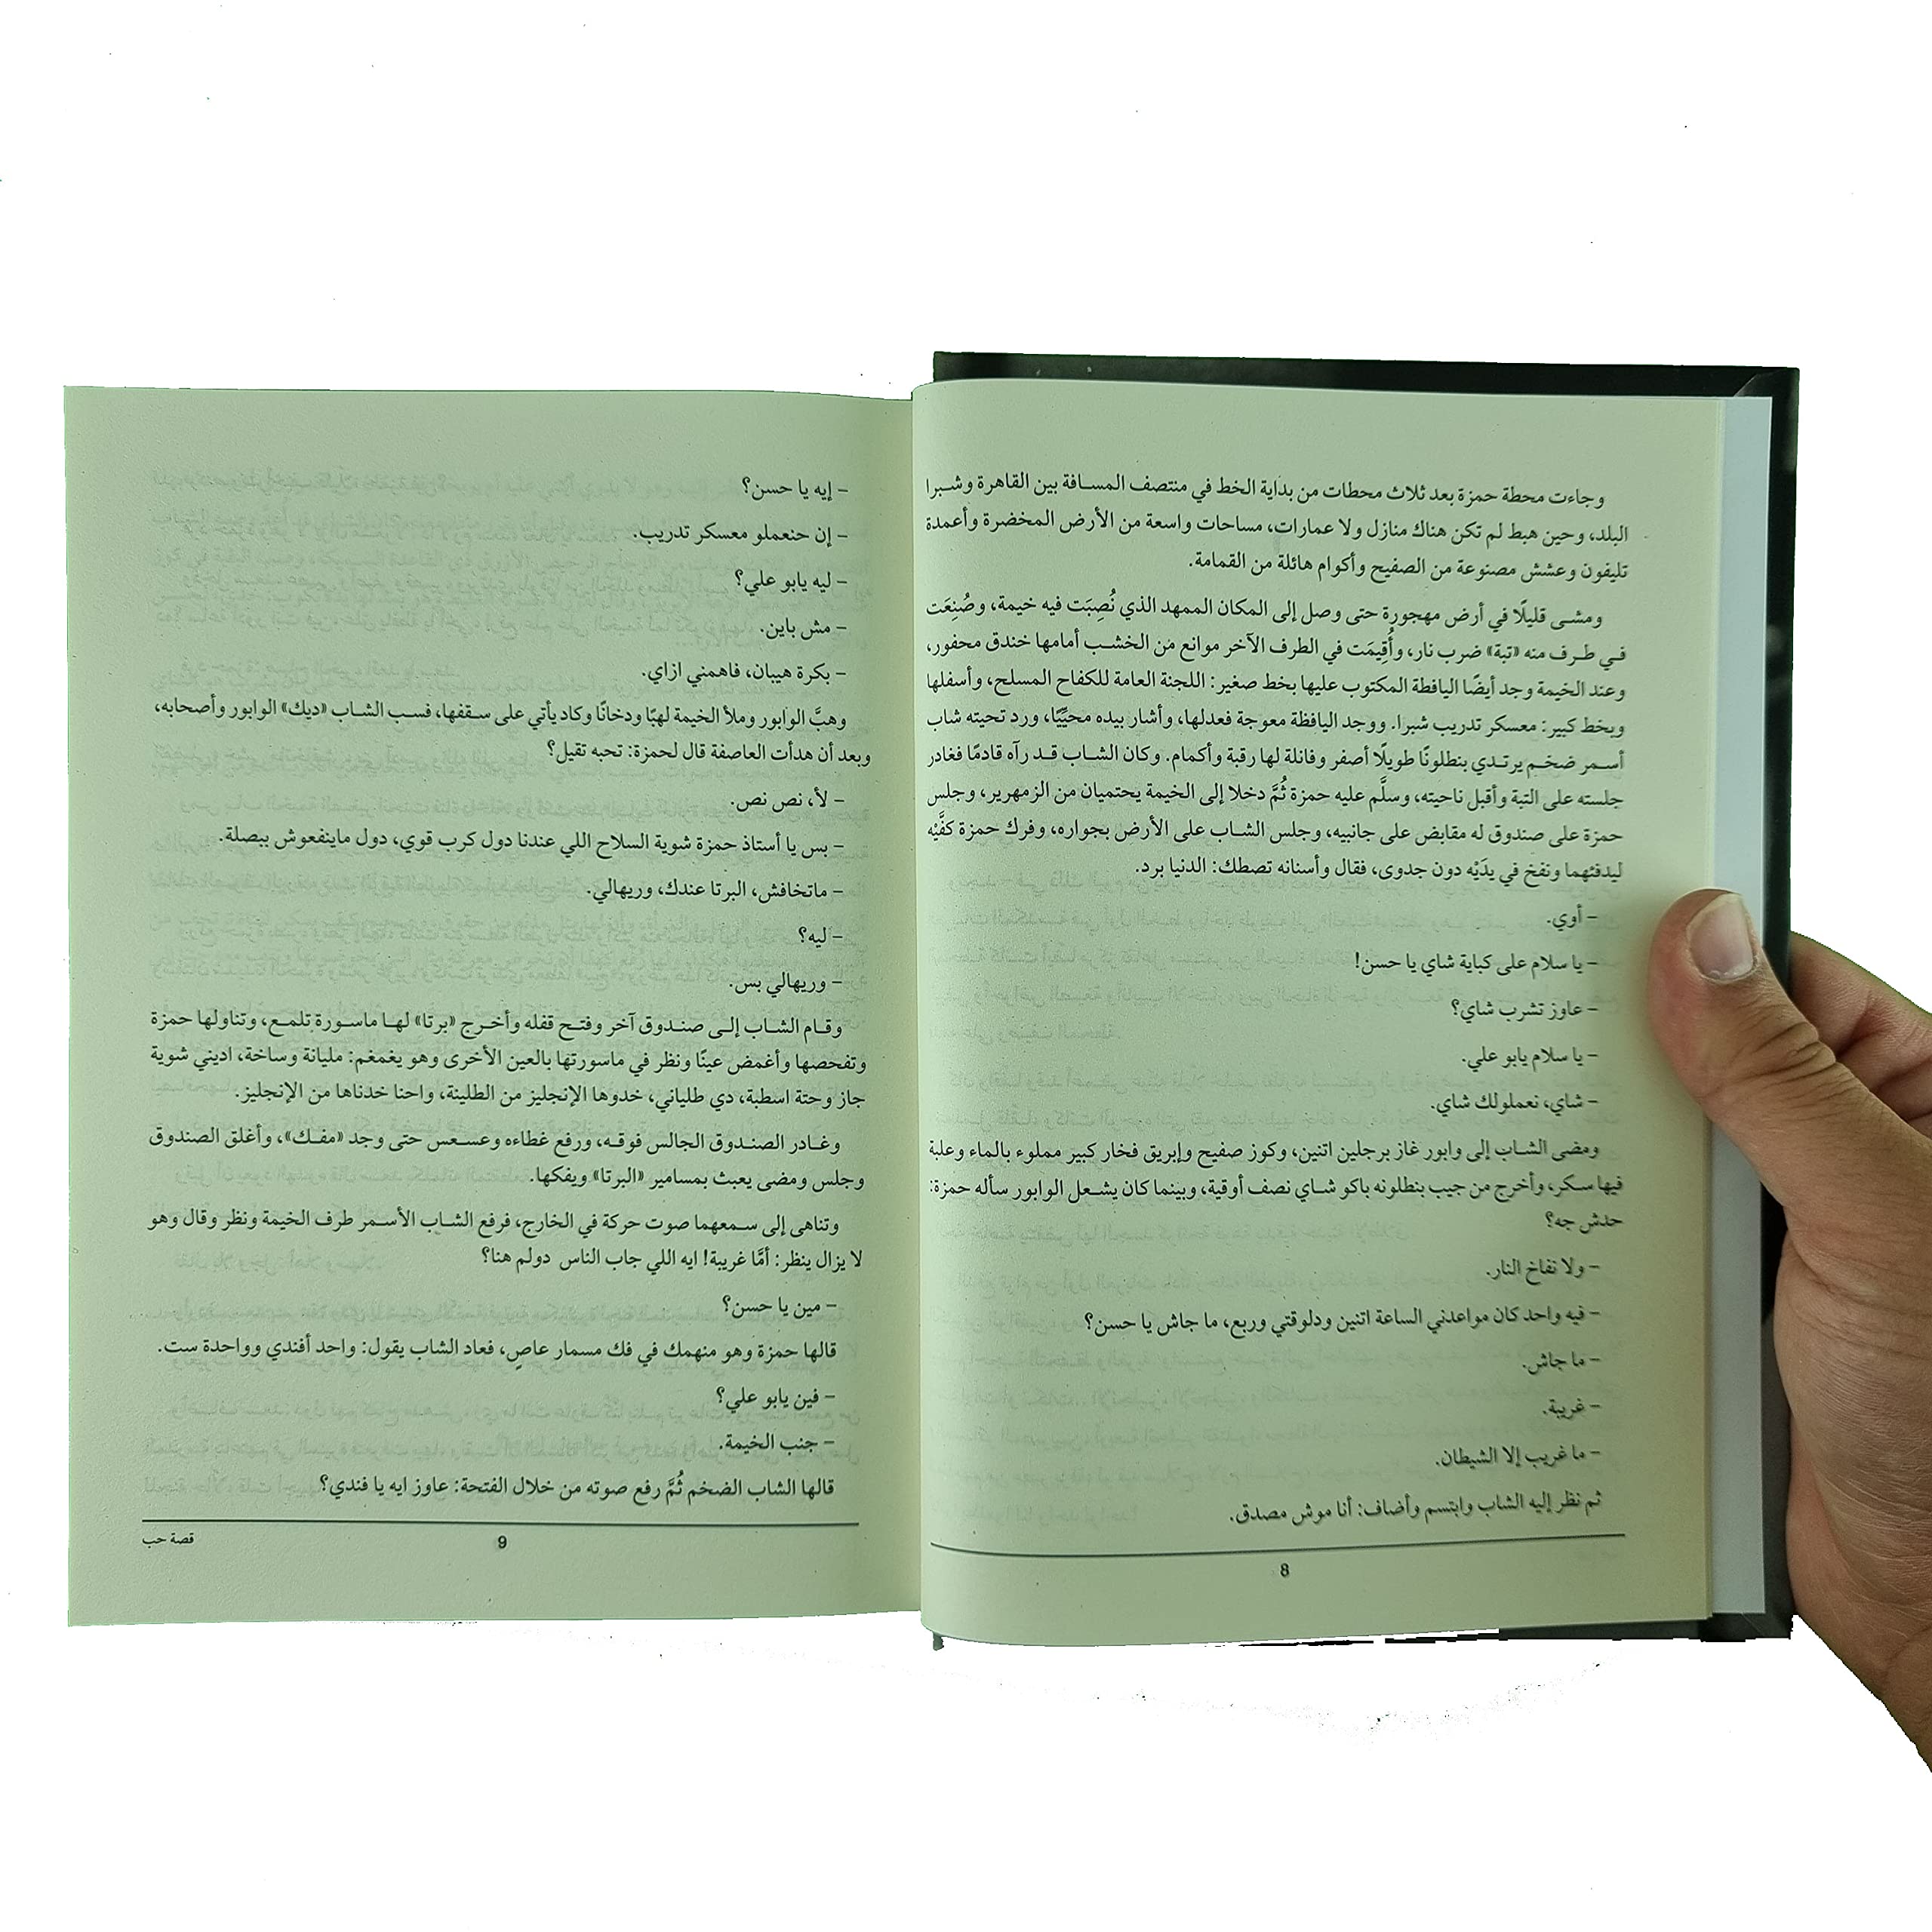 وجاءت محطة حمزة بعد ثلاث محطات من بداية الخط في منتصف المسافة بين القاهرة وشبرا
البلد، وحين هبط لم تكن هناك منازل ولا عمارات، مساحات واسعة من الأرض المخضرة وأعمدة
تليفون وعشش مصنوعة من الصفيح وأكوام هائلة من القمامة.
ومشى قليلًا في أرض مهجورة حتى وصل إلى المكان الممهد الذي نُصِبَت فيه خيمة، وصُنِعَت
في طرف منه «تبة» ضرب نار، وأُقِيمَت في الطرف الآخر موانع من الخشب أمامها خندق محفور،
وعند الخيمة وجد أيضًا اليافطة المكتوب عليها بخط صغير: اللجنة العامة للكفاح المسلح، وأسفلها
وبخط كبير: معسكر تدريب شبرا. ووجد اليافظة معوجة فعدلها، وأشار بيده محيِّيًا، ورد تحيته شاب
أسمر ضخم يرتدي بنطلونًا طويلًا أصفر وفانلة لها رقبة وأكمام. وكان الشاب قد رآه قادمًا فغادر
جلسته على التبة وأقبل ناحيته، وسلَّم عليه حمزة ثُمَّ دخلا إلى الخيمة يحتميان من الزمهرير، وجلس
حمزة على صندوق له مقابض على جانبيه، وجلس الشاب على الأرض بجواره، وفرك حمزة كفَّيْه
ليدفئهما ونفخ في يدَيْه دون جدوى، فقال وأسنانه تصطك: الدنيا برد.
– أوي.
– يا سلام على كباية شاي يا حسن!
– عاوز تشرب شاي؟
– يا سلام يابو علي.
– شاي، نعملولك شاي.
ومضى الشاب إلى وابور غاز برجلين اتنين، وكوز صفيح وإبريق فخار كبير مملوء بالماء وعلبة
فيها سكر، وأخرج من جيب بنطلونه باكو شاي نصف أوقية، وبينما كان يشعل الوابور سأله حمزة:
حدش جه؟
– ولا نفاخ النار.
– فيه واحد كان مواعدني الساعة اتنين ودلوقتي وربع، ما جاش يا حسن؟
– ما جاش.
– غريبة.
– ما غريب إلا الشيطان.
ثم نظر إليه الشاب وابتسم وأضاف: أنا موش مصدق.
8
– إيه يا حسن؟
– إن حنعملو معسكر تدريب.
– ليه يابو علي؟
– مش باين.
– بكرة هيبان، فاهمني ازاي.
وهبَّ الوابور وملأ الخيمة لهبًا ودخانًا وكاد يأتي على سقفها، فسب الشاب «ديك» الوابور وأصحابه،
وبعد أن هدأت العاصفة قال لحمزة: تحبه تقيل؟
– لأ، نص نص.
– بس يا أستاذ حمزة شوية السلاح اللي عندنا دول كرب قوي، دول ماينفعوش ببصلة.
– ماتخافش، البرتا عندك، وريهالي.
– ليه؟
– وريهالي بس.
وقام الشاب إلى صندوق آخر وفتح قفله وأخرج «برتا» لها ماسورة تلمع، وتناولها حمزة
وتفحصها وأغمض عينًا ونظر في ماسورتها بالعين الأخرى وهو يغمغم: مليانة وساخة، اديني شوية
جاز وحتة اسطبة، دي طلياني، خدوها الإنجليز من الطلينة، واحنا خدناها من الإنجليز.
وغادر الصندوق الجالس فوقه، ورفع غطاءه وعسعس حتى وجد «مفك»، وأغلق الصندوق
وجلس ومضى يعبث بمسامير «البرتا» ويفكها.
وتناهى إلى سمعهما صوت حركة في الخارج، فرفع الشاب الأسمر طرف الخيمة ونظر وقال وهو
لا يزال ينظر: أمَّا غريبة! ايه اللي جاب الناس دولم هنا؟
– مين يا حسن؟
قالها حمزة وهو منهمك في فك مسمار عاصٍ، فعاد الشاب يقول: واحد أفندي وواحدة ست.
– فين يابو علي؟
– جنب الخيمة.
قالها الشاب الضخم ثُمَّ رفع صوته من خلال الفتحة: عاوز ايه يا فندي؟
9
قصة حب